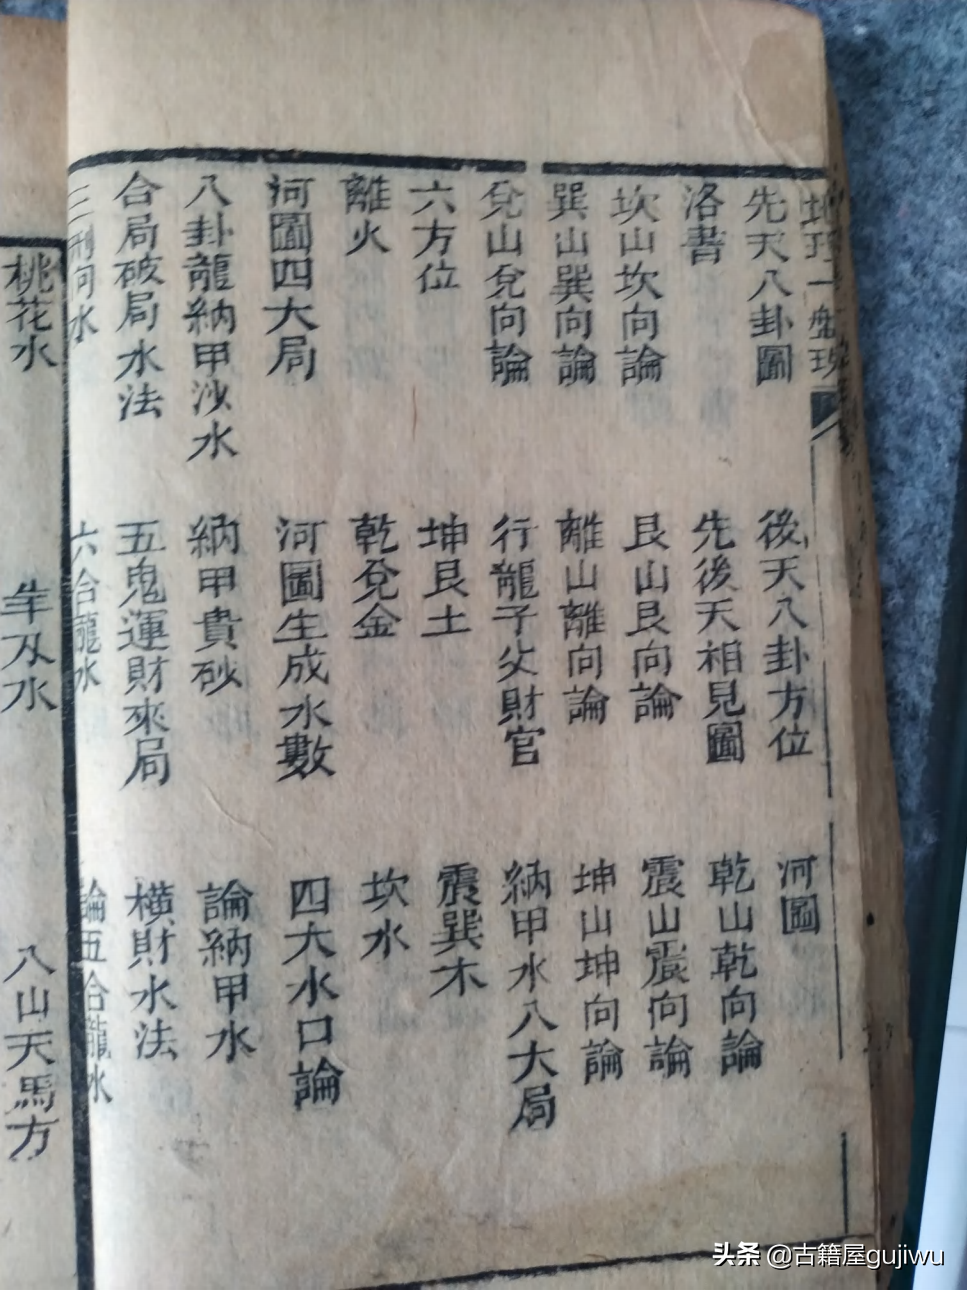 地理一盤珠
先天八卦圖 後天八卦方位 河圖
洛書 先後天相見圖 乾山乾向論
坎山坎向論 艮山艮向論 震山震向論
巽山巽向論 離山離向論 坤山坤向論
兌山兌向論 行龍子父財官 納甲水八大局
六方位 坤艮土 震巽木
離火 乾兌金 坎水
河圖四大局 河圖生成水數 四大水口論
八卦龍納甲沙水 納甲貴砂 論納甲水
合局破局水法 五鬼運財來局 橫財水法
三刑何水 六合龍水 論五合龍水
桃花水 羊刃水 八山天馬方
头条 @古籍屋gujiwu